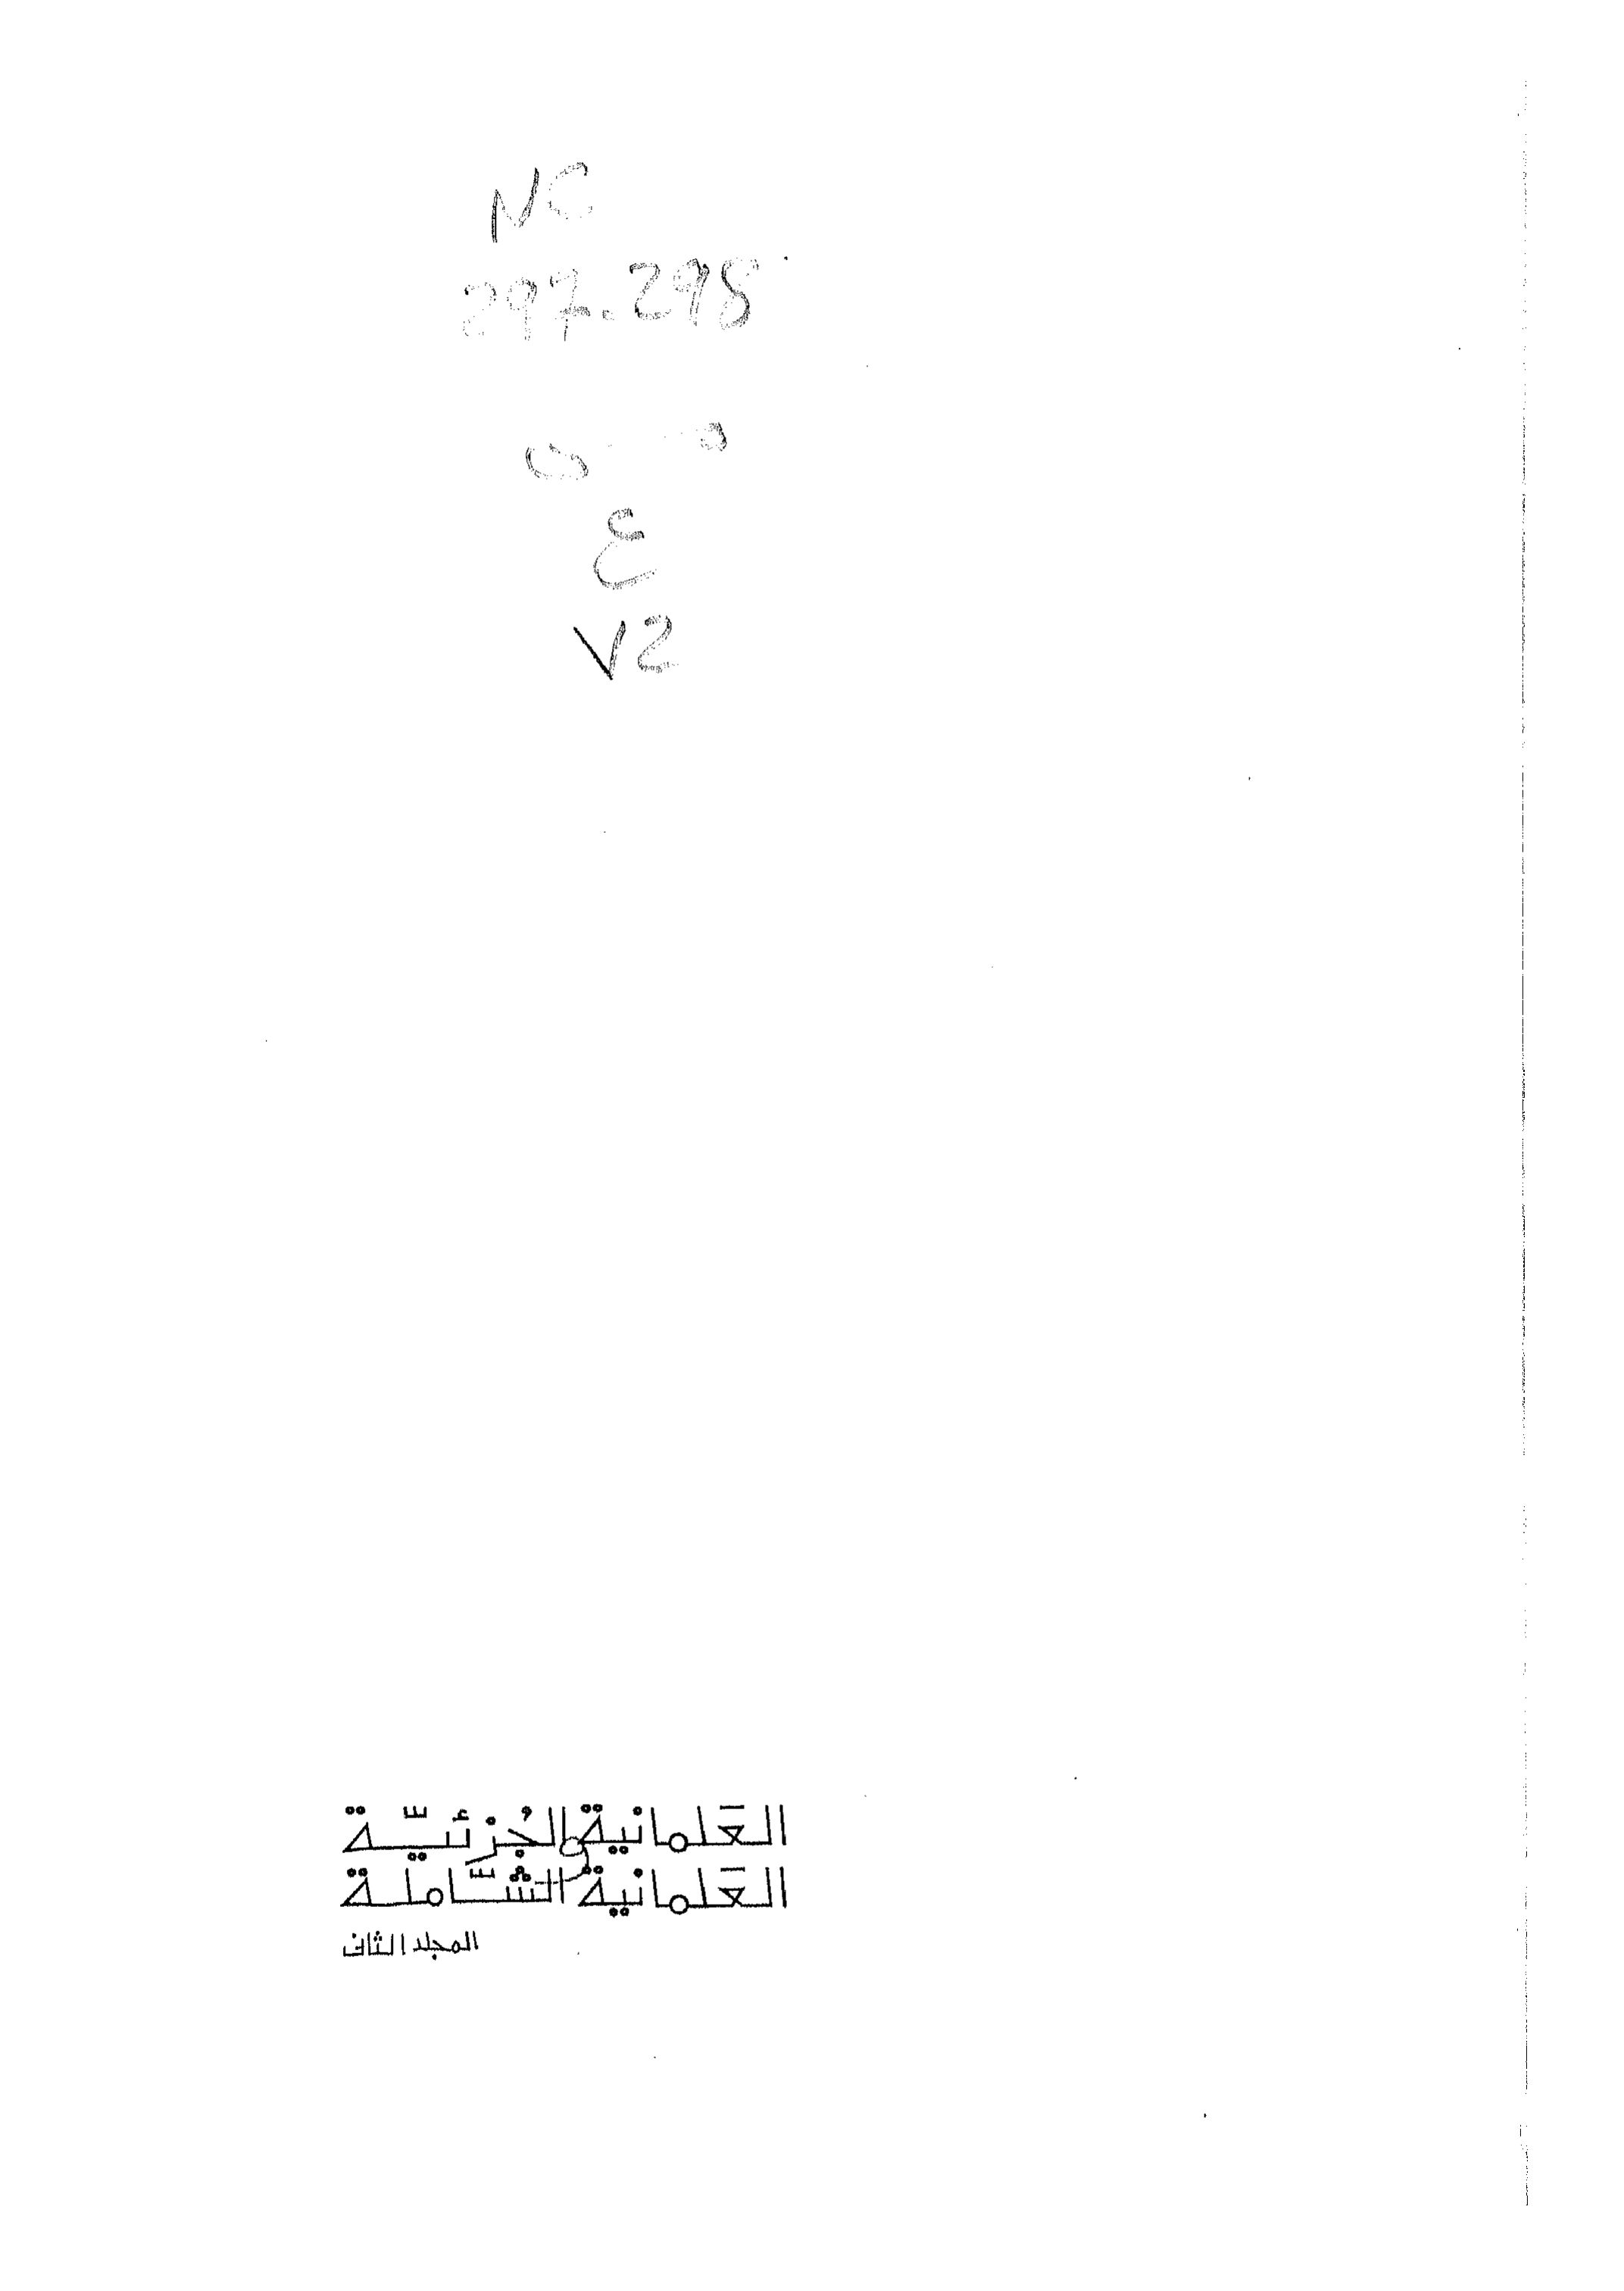 NC
297.298
ع
V2
العَلمانية الجُزئيّة
و
العَلمانية الشّاملة
المجلد الثاني